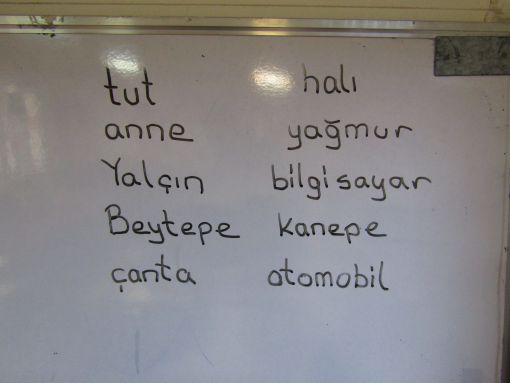 tut halı
anne yağmur
Yalçın bilgisayar
Beytepe kanepe
çanta otomobil